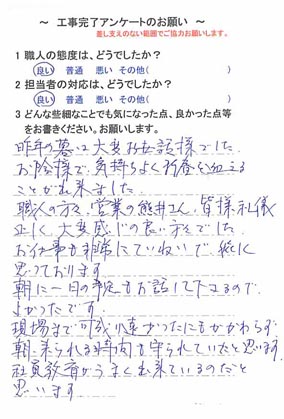 ～ 工事完了アンケートのお願い ～
差し支えのない範囲でご協力お願いします。
1 職人の態度は、どうでしたか？
良い 普通 悪い その他( )
2 担当者の対応は、どうでしたか？
良い 普通 悪い その他( )
3 どんな些細なことでも気になった点、良かった点等
をお書きください。お願いします。
昨年の暮は大変お世話様でした。
お陰様で、気持ちよく新春を迎える
ことが出来ました。
職人の方々、営業の熊井さん、皆様礼儀
正しく、大変感じの良い方々でした。
お仕事も非常にていねいで、
思っております。
朝に一日の予定もお話して下さるので
よかったです。
現場まで可成り遠かったにもかかわらず
朝、来られる時間も守られていたと思います。
社員教育がうまく出来ているのだと
思います。